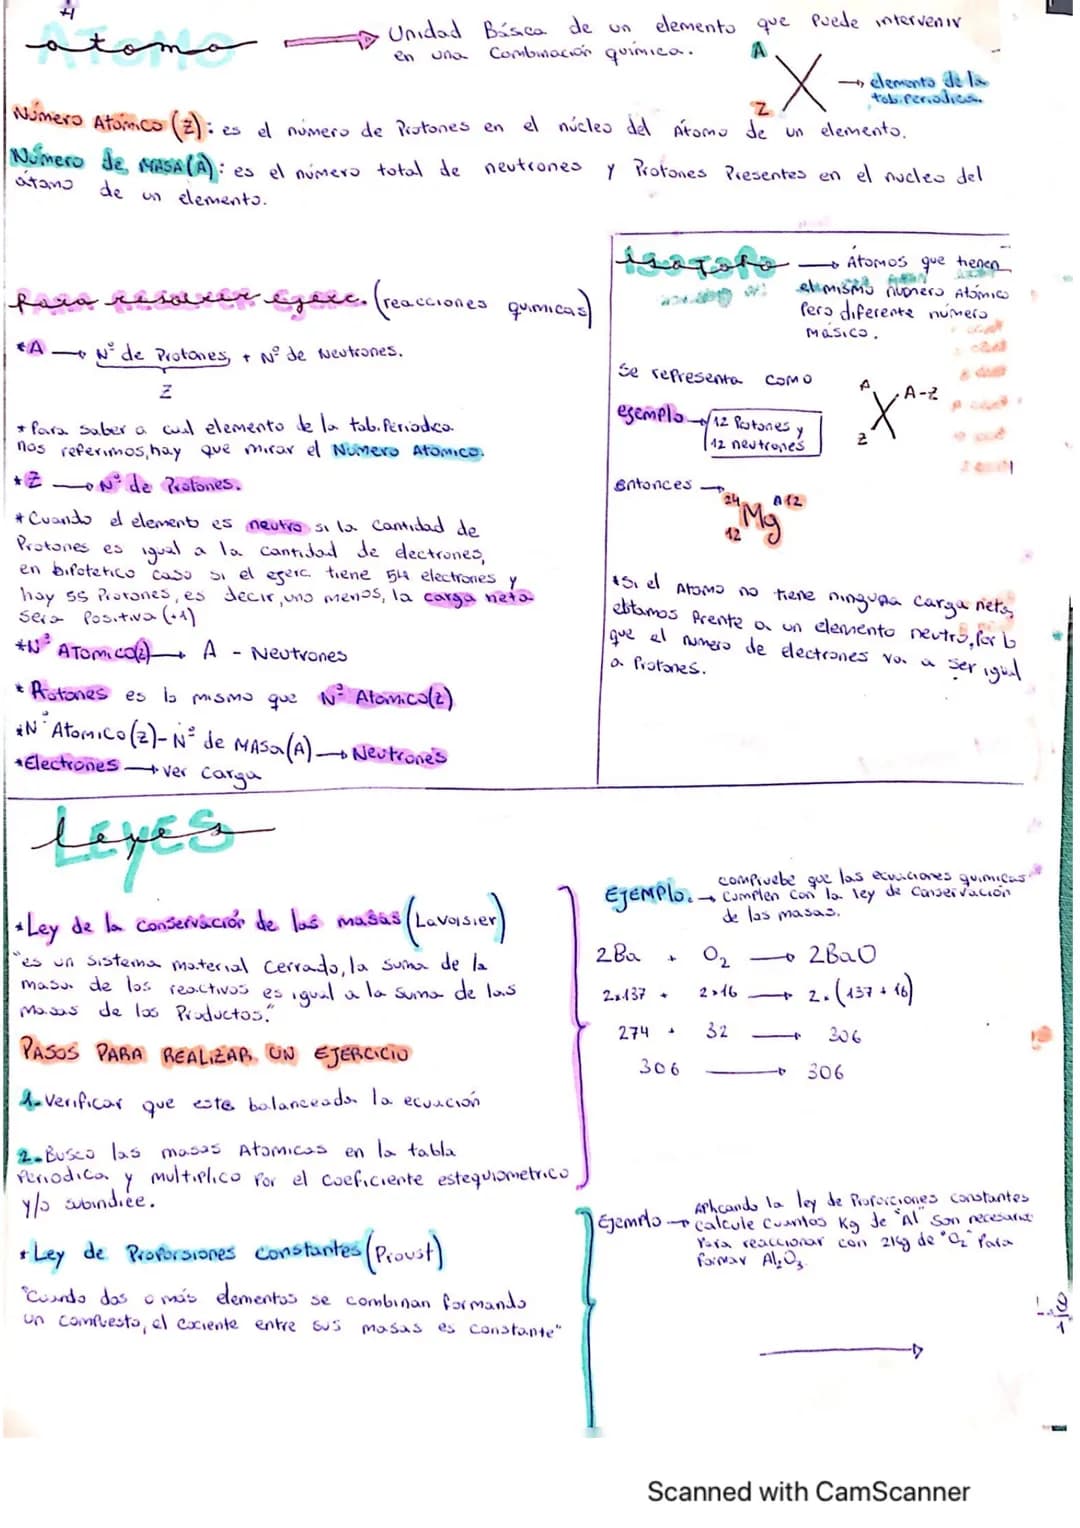 Átomo
Unidad Básica de un elemento que puede intervenir
en una Combinación química.
A
X
Z
elemento de la
tab. Periodica.
Número Atómico (Z): es el número de Protones en el núcleo del Átomo de un elemento.
Número de MASA (A): es el número total de neutrones y Protones Presentes en el nucleo del
átomo de un elemento.
Para resolver ejerc. (reacciones quimicas)
*A → Nº de Protones, + Nº de Neutrones.
Z
* Para saber a cual elemento de la tab. Periodica
nos referimos, hay que mirar el Numero Atomico.
*Z → Nº de Protones.
*Cuando el elemento es neutro si la cantidad de
Protones es igual a la cantidad de electrones,
en bipotetico caso si el ejerc tiene 54 electrones y
hay 55 Protones, es decir, uno menos, la carga neta
sera Positiva (+1)
*Nº Atomico(z) → A - Neutrones
* Protones es lo mismo que Nº Atomico(z)
*Nº Atomico (Z) - Nº de MASA (A) → Neutrones
*Electrones → ver carga
isotopo → Átomos que tienen
el mismo número Atómico
Pero diferente número
másico.
Se representa como
A
X A-Z
Z
ejemplo → 12 Protones y
12 neutrones
Entonces →
24 Mg 12
12
*Si el Atomo no tiene ninguna carga neta,
estamos frente a un elemento neutro, por lo
que el numero de electrones va a ser igual
a Protones.
Leyes
*Ley de la conservación de las masas (Lavoisier)
"es un sistema material cerrado, la suma de la
masa de los reactivos es igual a la suma de las
Masas de los Productos."
PASOS PARA REALIZAR UN EJERCICIO
1. Verificar que este balanceada la ecuación
2. Busco las masas Atomicas en la tabla
Periodica y multiplico por el coeficiente estequiometrico
y/o subindice.
EJEMPLO. → compruebe que las ecuaciones quimicas
cumplen con la ley de conservación
de las masas.
2Ba + O2 → 2BaO
2x137 + 2x16 → 2.(137 + 16)
274 + 32 → 306
306 → 306
*Ley de Proporsiones Constantes (Proust)
"Cuando dos o más elementos se combinan formando
un compuesto, el cociente entre sus masas es constante"
Ejemplo → Aplicando la ley de Proporciones constantes
calcule cuantos Kg de "Al" son necesarios
Para reaccionar con 21kg de "O2" Para
formar Al2O3.
Scanned with CamScanner